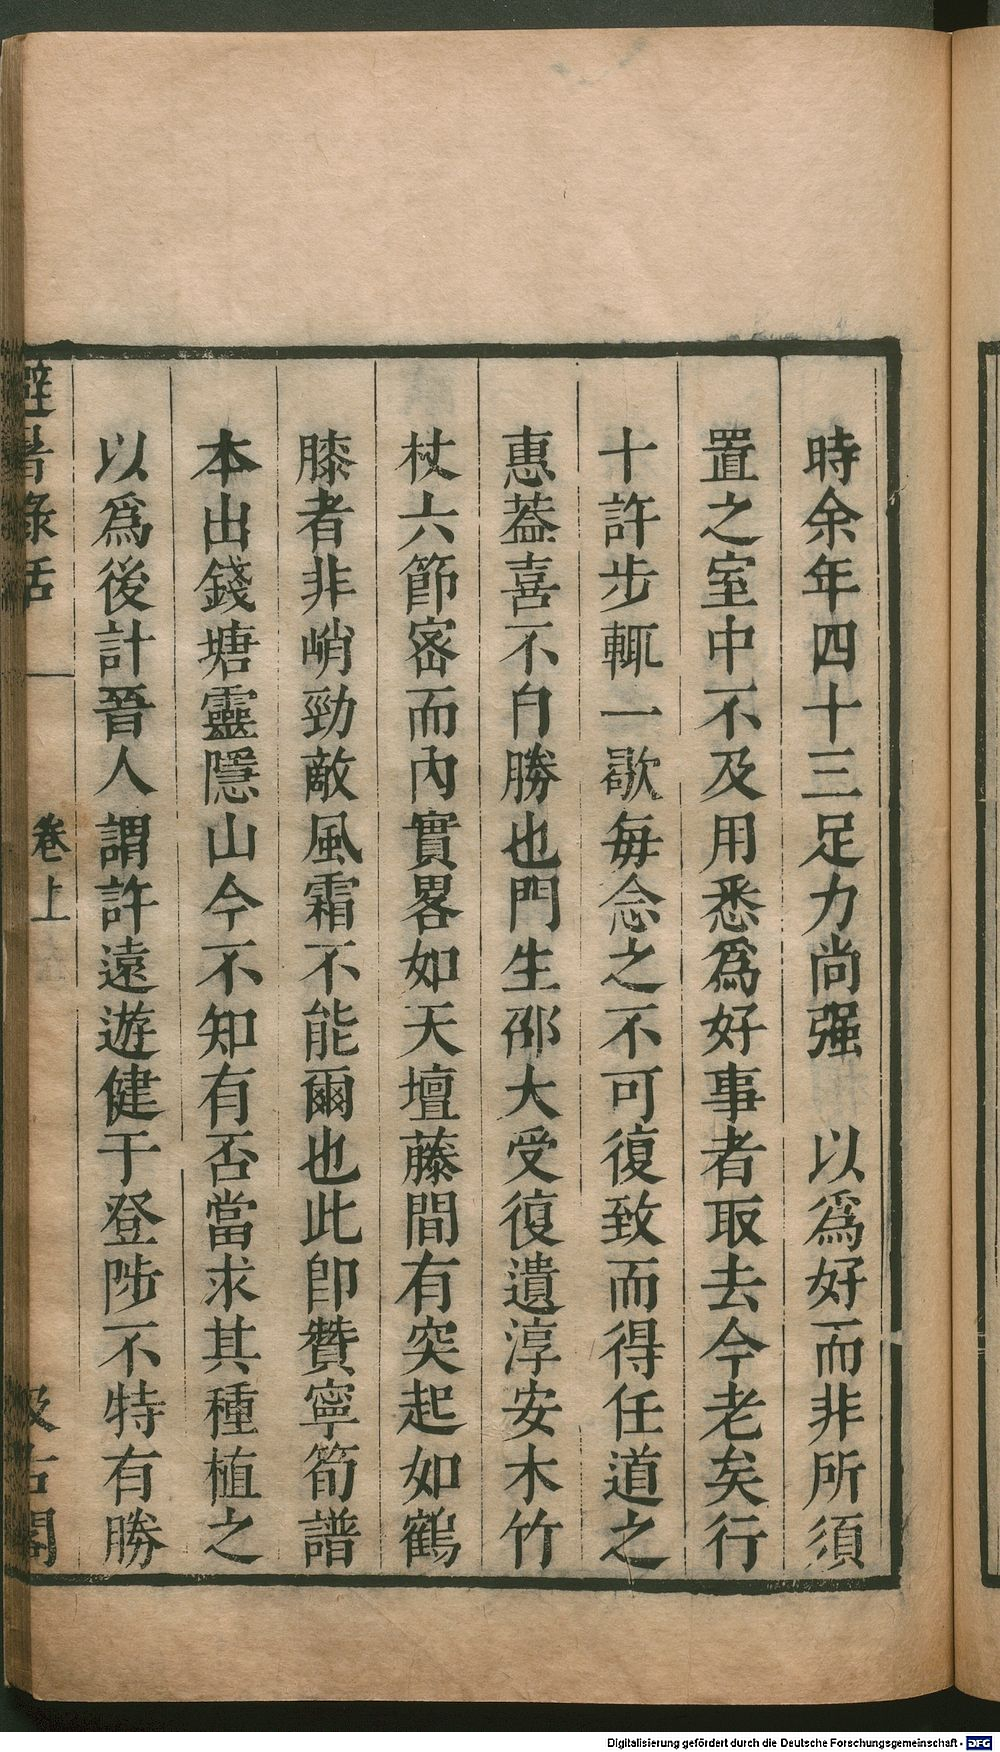 時余年四十三足力尚强　以爲好而非所須
置之室中不及用悉爲好事者取去今老矣行
十許步輒一歇每念之不可復致而得任道之
惠葢喜不自勝也門生邵大受復遺淳安木竹
杖六節宻而內實畧如天壇藤間有突起如鶴
膝者非峭勁敵風霜不能爾也此卽贊寧筍譜
本出錢塘靈隱山今不知有否當求其種植之
以爲後計晉人謂許遠遊健于登陟不特有勝
避暑錄話
卷上
汲古閣
Digitalisierung gefördert durch die Deutsche Forschungsgemeinschaft - DFG